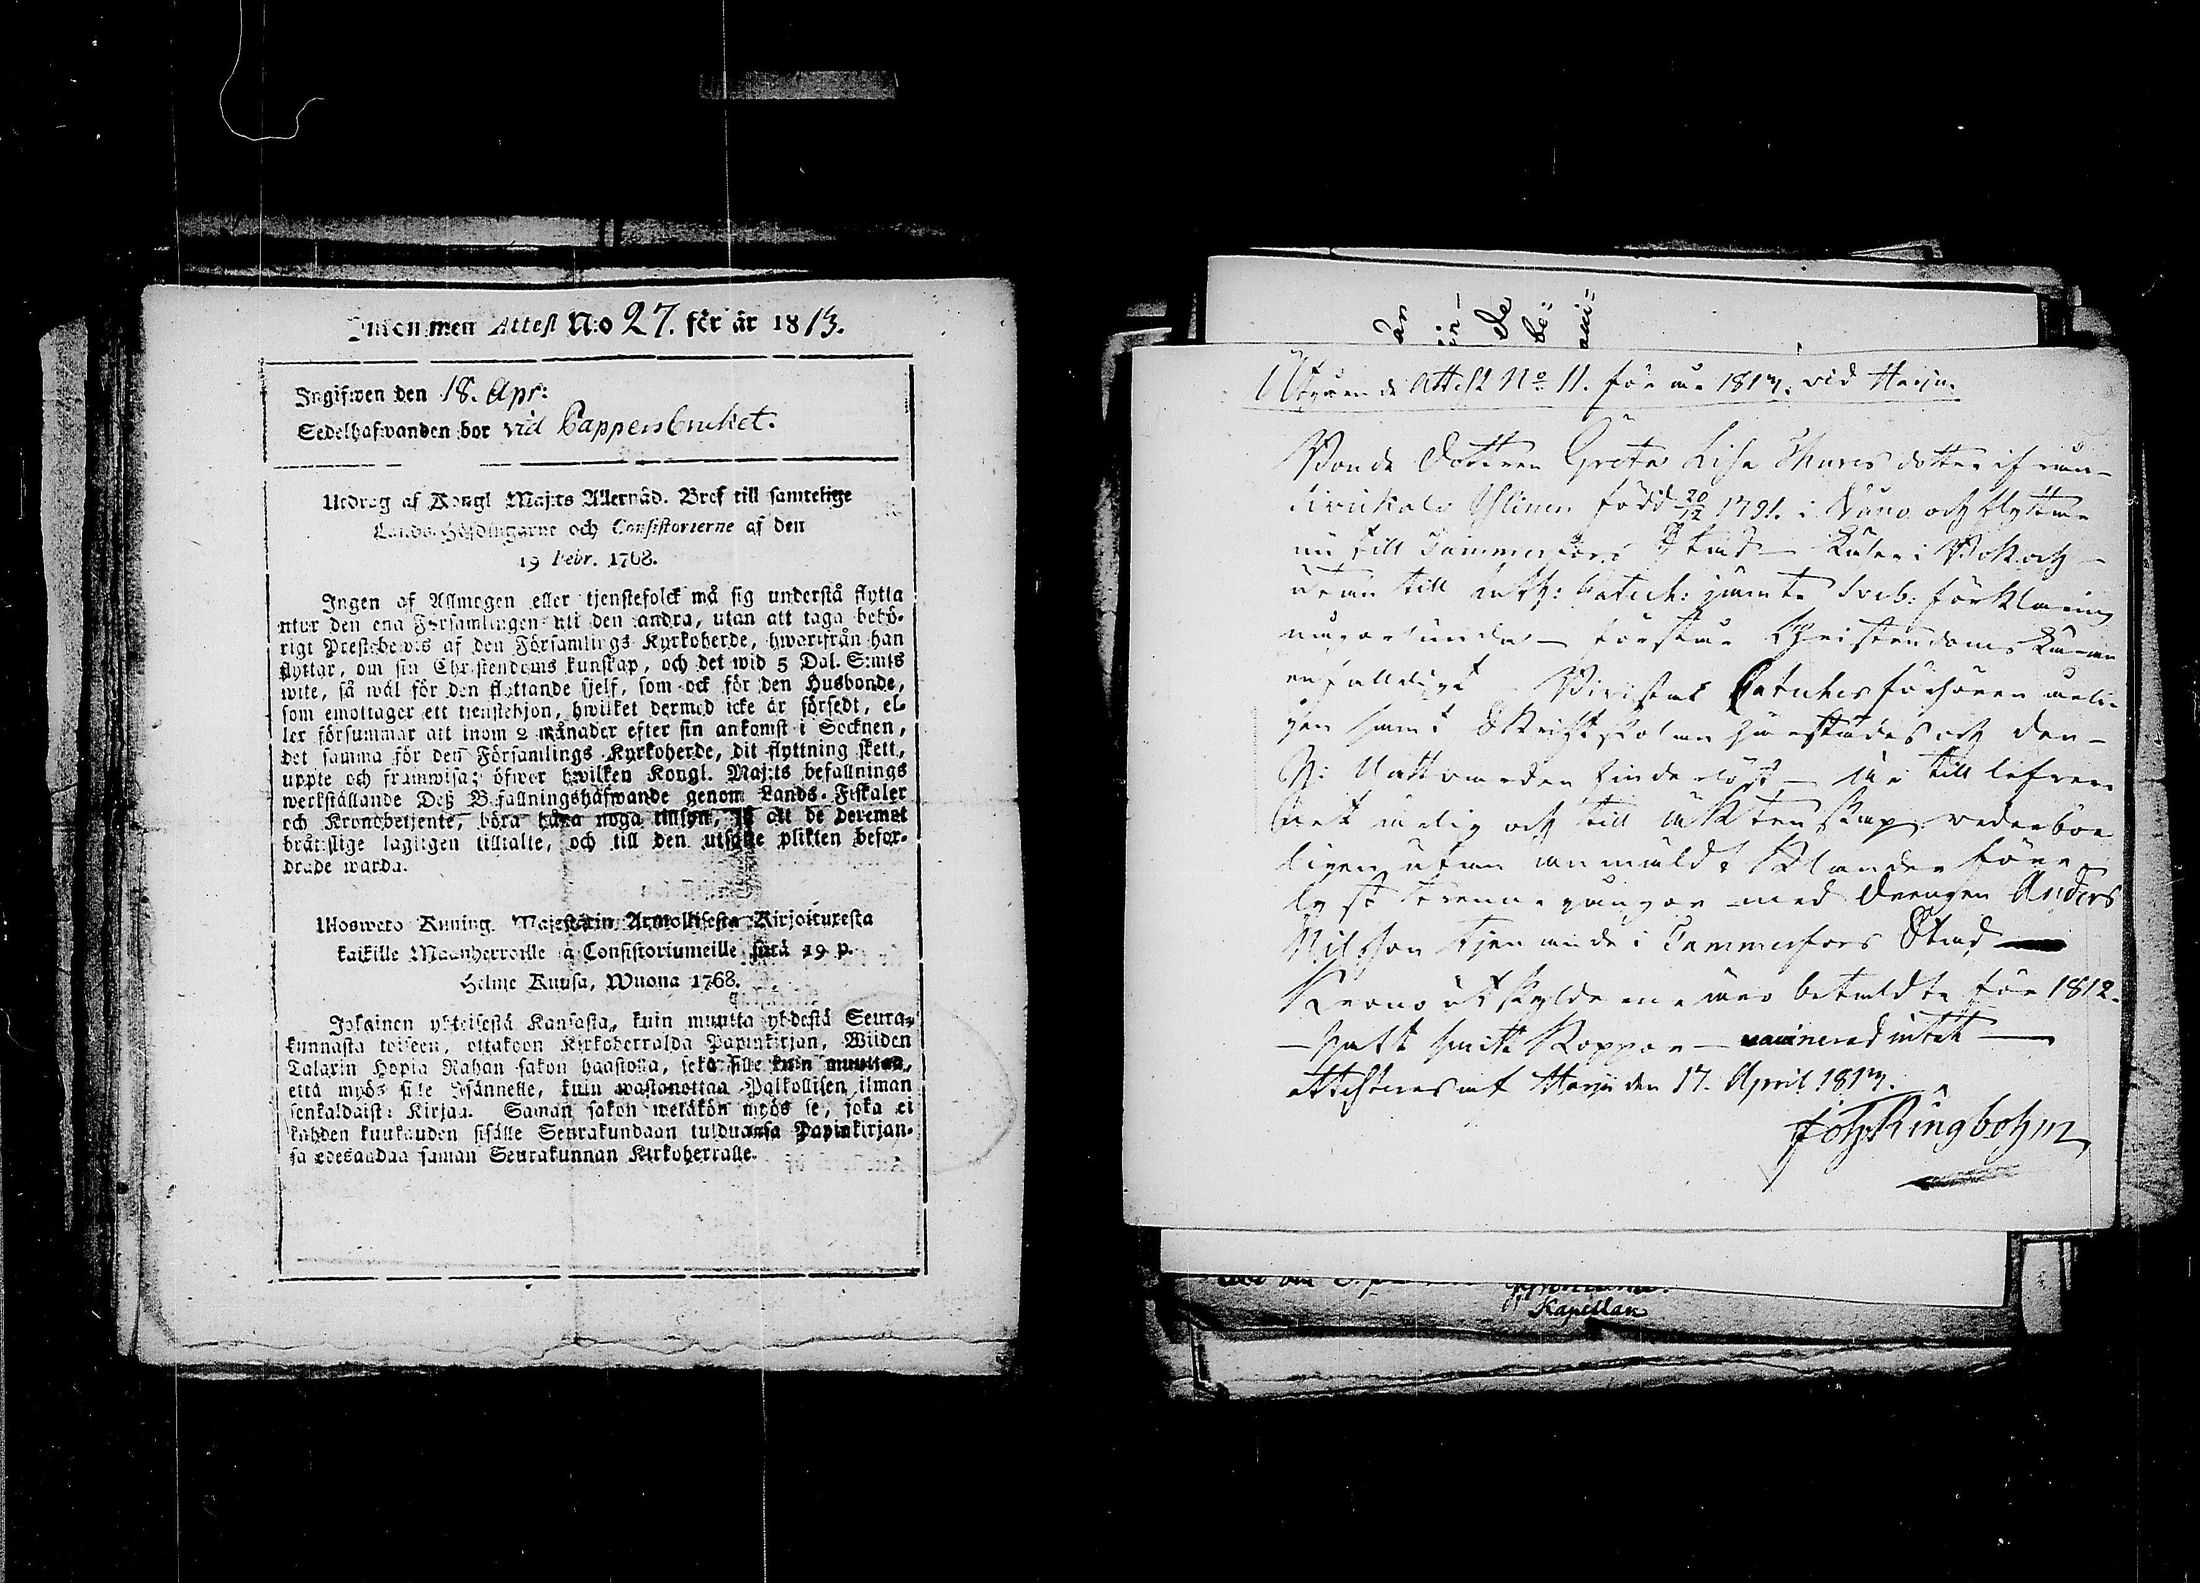 Inkommen Attest N:o 27. för år 1813.
Ingifwen den 18. Apr:
Sedelhafwanden bor vid Pappersbruket.
Utdrag af Kongl Maj:ts Allernåd. Bref till samtelige
Lands-Höfdingarne och Consistorierne af den
19 Febr. 1768.
Ingen af Allmogen eller tjenstefolck må sig understå flytta
utur den ena Församlingen uti den andra, utan att taga behö-
rigt Prestebewis af den Församlings Kyrkoherde, hwarifrån han
flyttar, om sin Christendoms kunskap, och det wid 5 Dal. S:mts
wite, så wäl för den flyttande sjelf, som ock för den Husbonde,
som emottager ett tienstehjon, hwilket dermed icke är försedt, el-
ler försummar att inom 2 månader efter sin ankomst i Socknen,
det samma för den Församlings Kyrkoherde, dit flyttning skett,
uppte och framwisa; öfwer hwilken Kongl. Maj:ts befallnings
werkställande Deß Befallningshafwande genom Lands-Fiskaler
och Kronobetjente, böra hafwa noga tillsyn, så att de deremot
brätslige lagligen tilltalte, och till den utsatte plikten befor-
drade warda.
Ulosweto Kuning. Majestätin Armollisesta Kirjoituresta
kaikille Maanherroille ja Consistoriumeille siitä 19 p.
Helme Kuusa, Wuona 1768.
Jokainen yhteisestä Kansasta, kuin muutta yhdestä Seura-
kunnasta toiseen, ottakoon Kirkoherralda Papinkirjan, Wiiden
Talarin Hopia Rahan sakon haastolla, sekä sille kuin muuttaa,
että myös sille Isännelle, kuin wastanottaa Palkollisen ilman
senkaldaista Kirjaa. Saman sakon wetäkön myös se, joka ei
kahden kuukauden sisälle Seurakundaan tulduansa Papinkirjan-
sa edesandaa saman Seurakunnan Kirkoherralle.
Utgående Attest No 11. för år 1813. vid Harju.
Bonde Dottren Greta Lisa Thures dotter ifrån
Ylinen född 20/12 1791. i Wåno och flyttar
nu till Tammerfors Stad Läser i Bok och
utan till Luth: Catech: jämte Sveb: förklaring
förstår Christendoms Läran
enfalldigt Bivistat Catichisförhören
gen samt Skriftskolan härstädes och den
H: Nattvarden Är till lefvernet
ärlig och till äktenskap vederbör-
ligen utan anmäldt Klander före-
lyst trenne gångor med Drengen Anders
Nilsson tjenande i Tammerfors Stad
Krono utskylderne äro betaldte för 1812.
haft smitt Koppor
Attesteras af Harju den 17. April 1813.
Joh Ringbohm
Kapellan